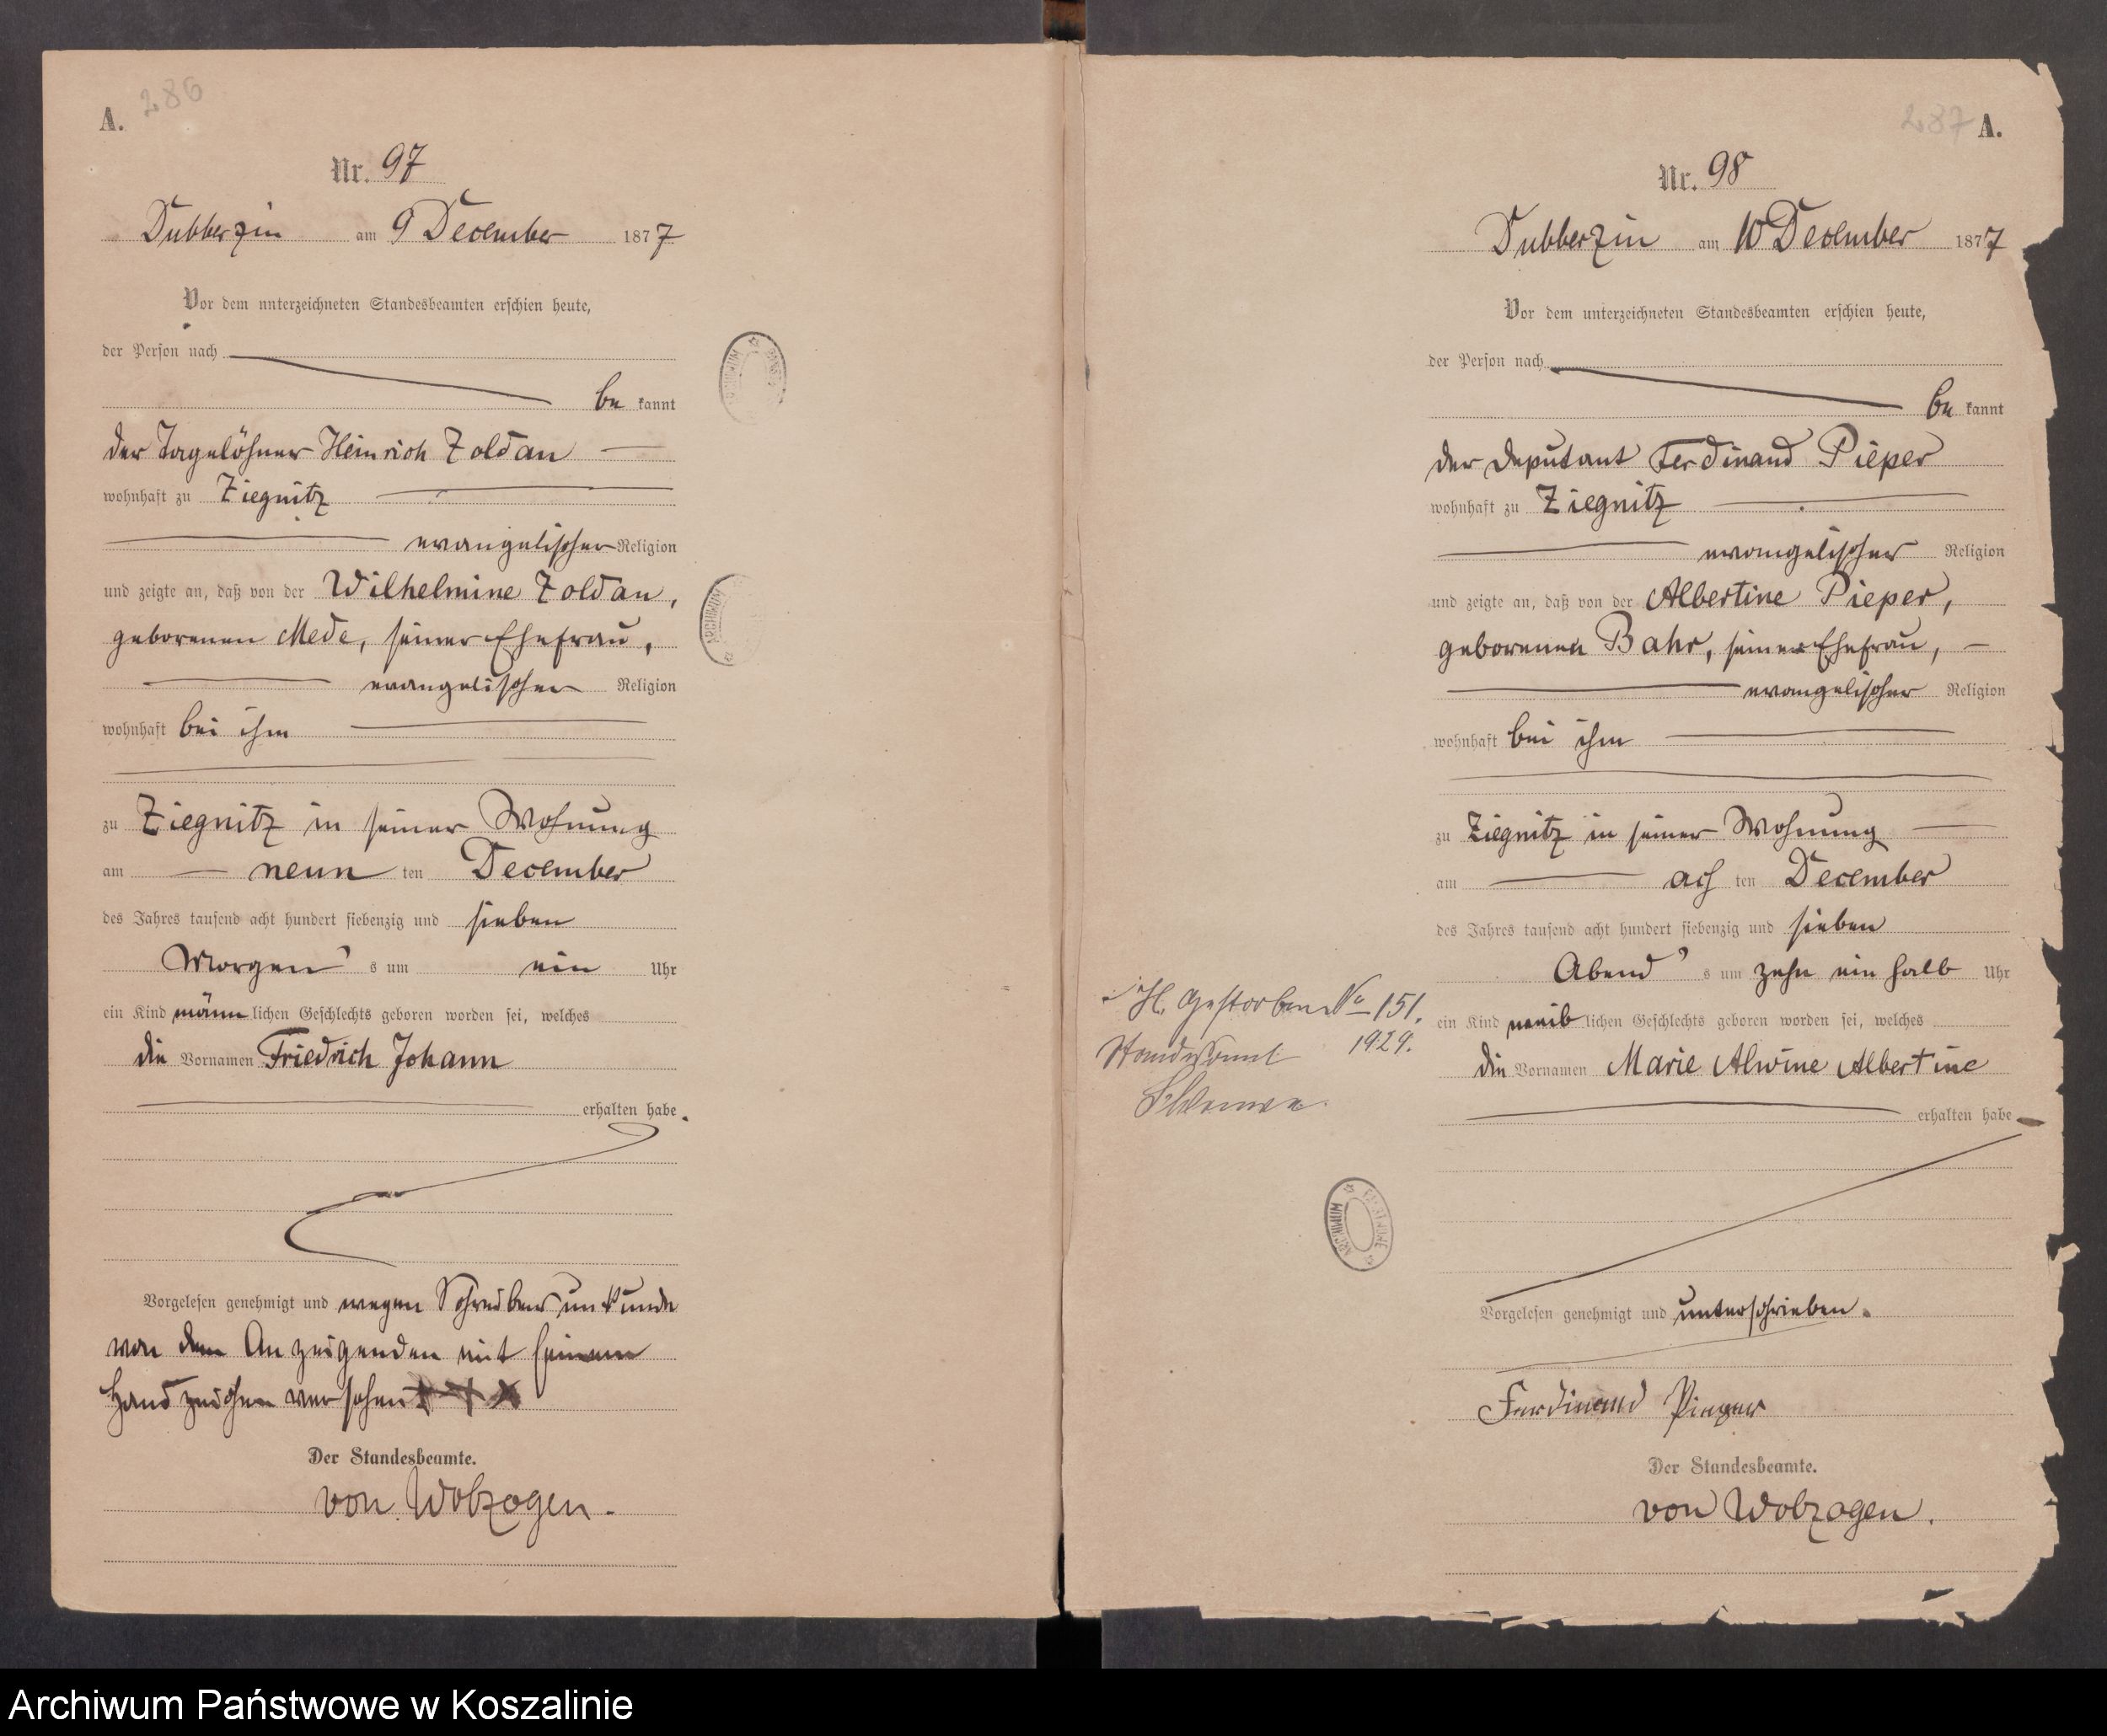 A. 286
Nr. 97
Dubberzin am 9 December 1877
Vor dem unterzeichneten Standesbeamten erschien heute,
der Person nach
be kannt
der Tagelöhner Heinrich Zoldan
wohnhaft zu Ziegnitz
evangelischer Religion
und zeigte an, daß von der Wilhelmine Zoldan,
geborenen Mede, seiner Ehefrau,
evangelischer Religion
wohnhaft bei ihm
zu Ziegnitz in seiner Wohnung
am neun ten December
des Jahres tausend acht hundert siebenzig und sieben
Morgen's um ein Uhr
ein Kind männ lichen Geschlechts geboren worden sei, welches
die Vornamen Friedrich Johann
erhalten habe.
Vorgelesen genehmigt und wegen Schreibens unkunde
von dem Anzeigenden mit seinem
Handzeichen versehen + + X
Der Standesbeamte.
von Wolzogen.
ARCHIWUM
ARCHIWUM
287 A.
Nr. 98
Dubberzin am 10 December 1877
Vor dem unterzeichneten Standesbeamten erschien heute,
der Person nach
be kannt
der Deputant Ferdinand Pieper
wohnhaft zu Ziegnitz
evangelischer Religion
und zeigte an, daß von der Albertine Pieper,
geborenen Bahr, seiner Ehefrau,
evangelischer Religion
wohnhaft bei ihm
zu Ziegnitz in seiner Wohnung
am ach ten December
des Jahres tausend acht hundert siebenzig und sieben
Abend's um zehn ein halb Uhr
ein Kind weib lichen Geschlechts geboren worden sei, welches
die Vornamen Marie Alwine Albertine
erhalten habe
H. Gestorben No 151.
Standesamt 1929.
ARCHIWUM
Vorgelesen genehmigt und unterschrieben.
Ferdinand Pieper
Der Standesbeamte.
von Wolzogen.
Archiwum Państwowe w Koszalinie